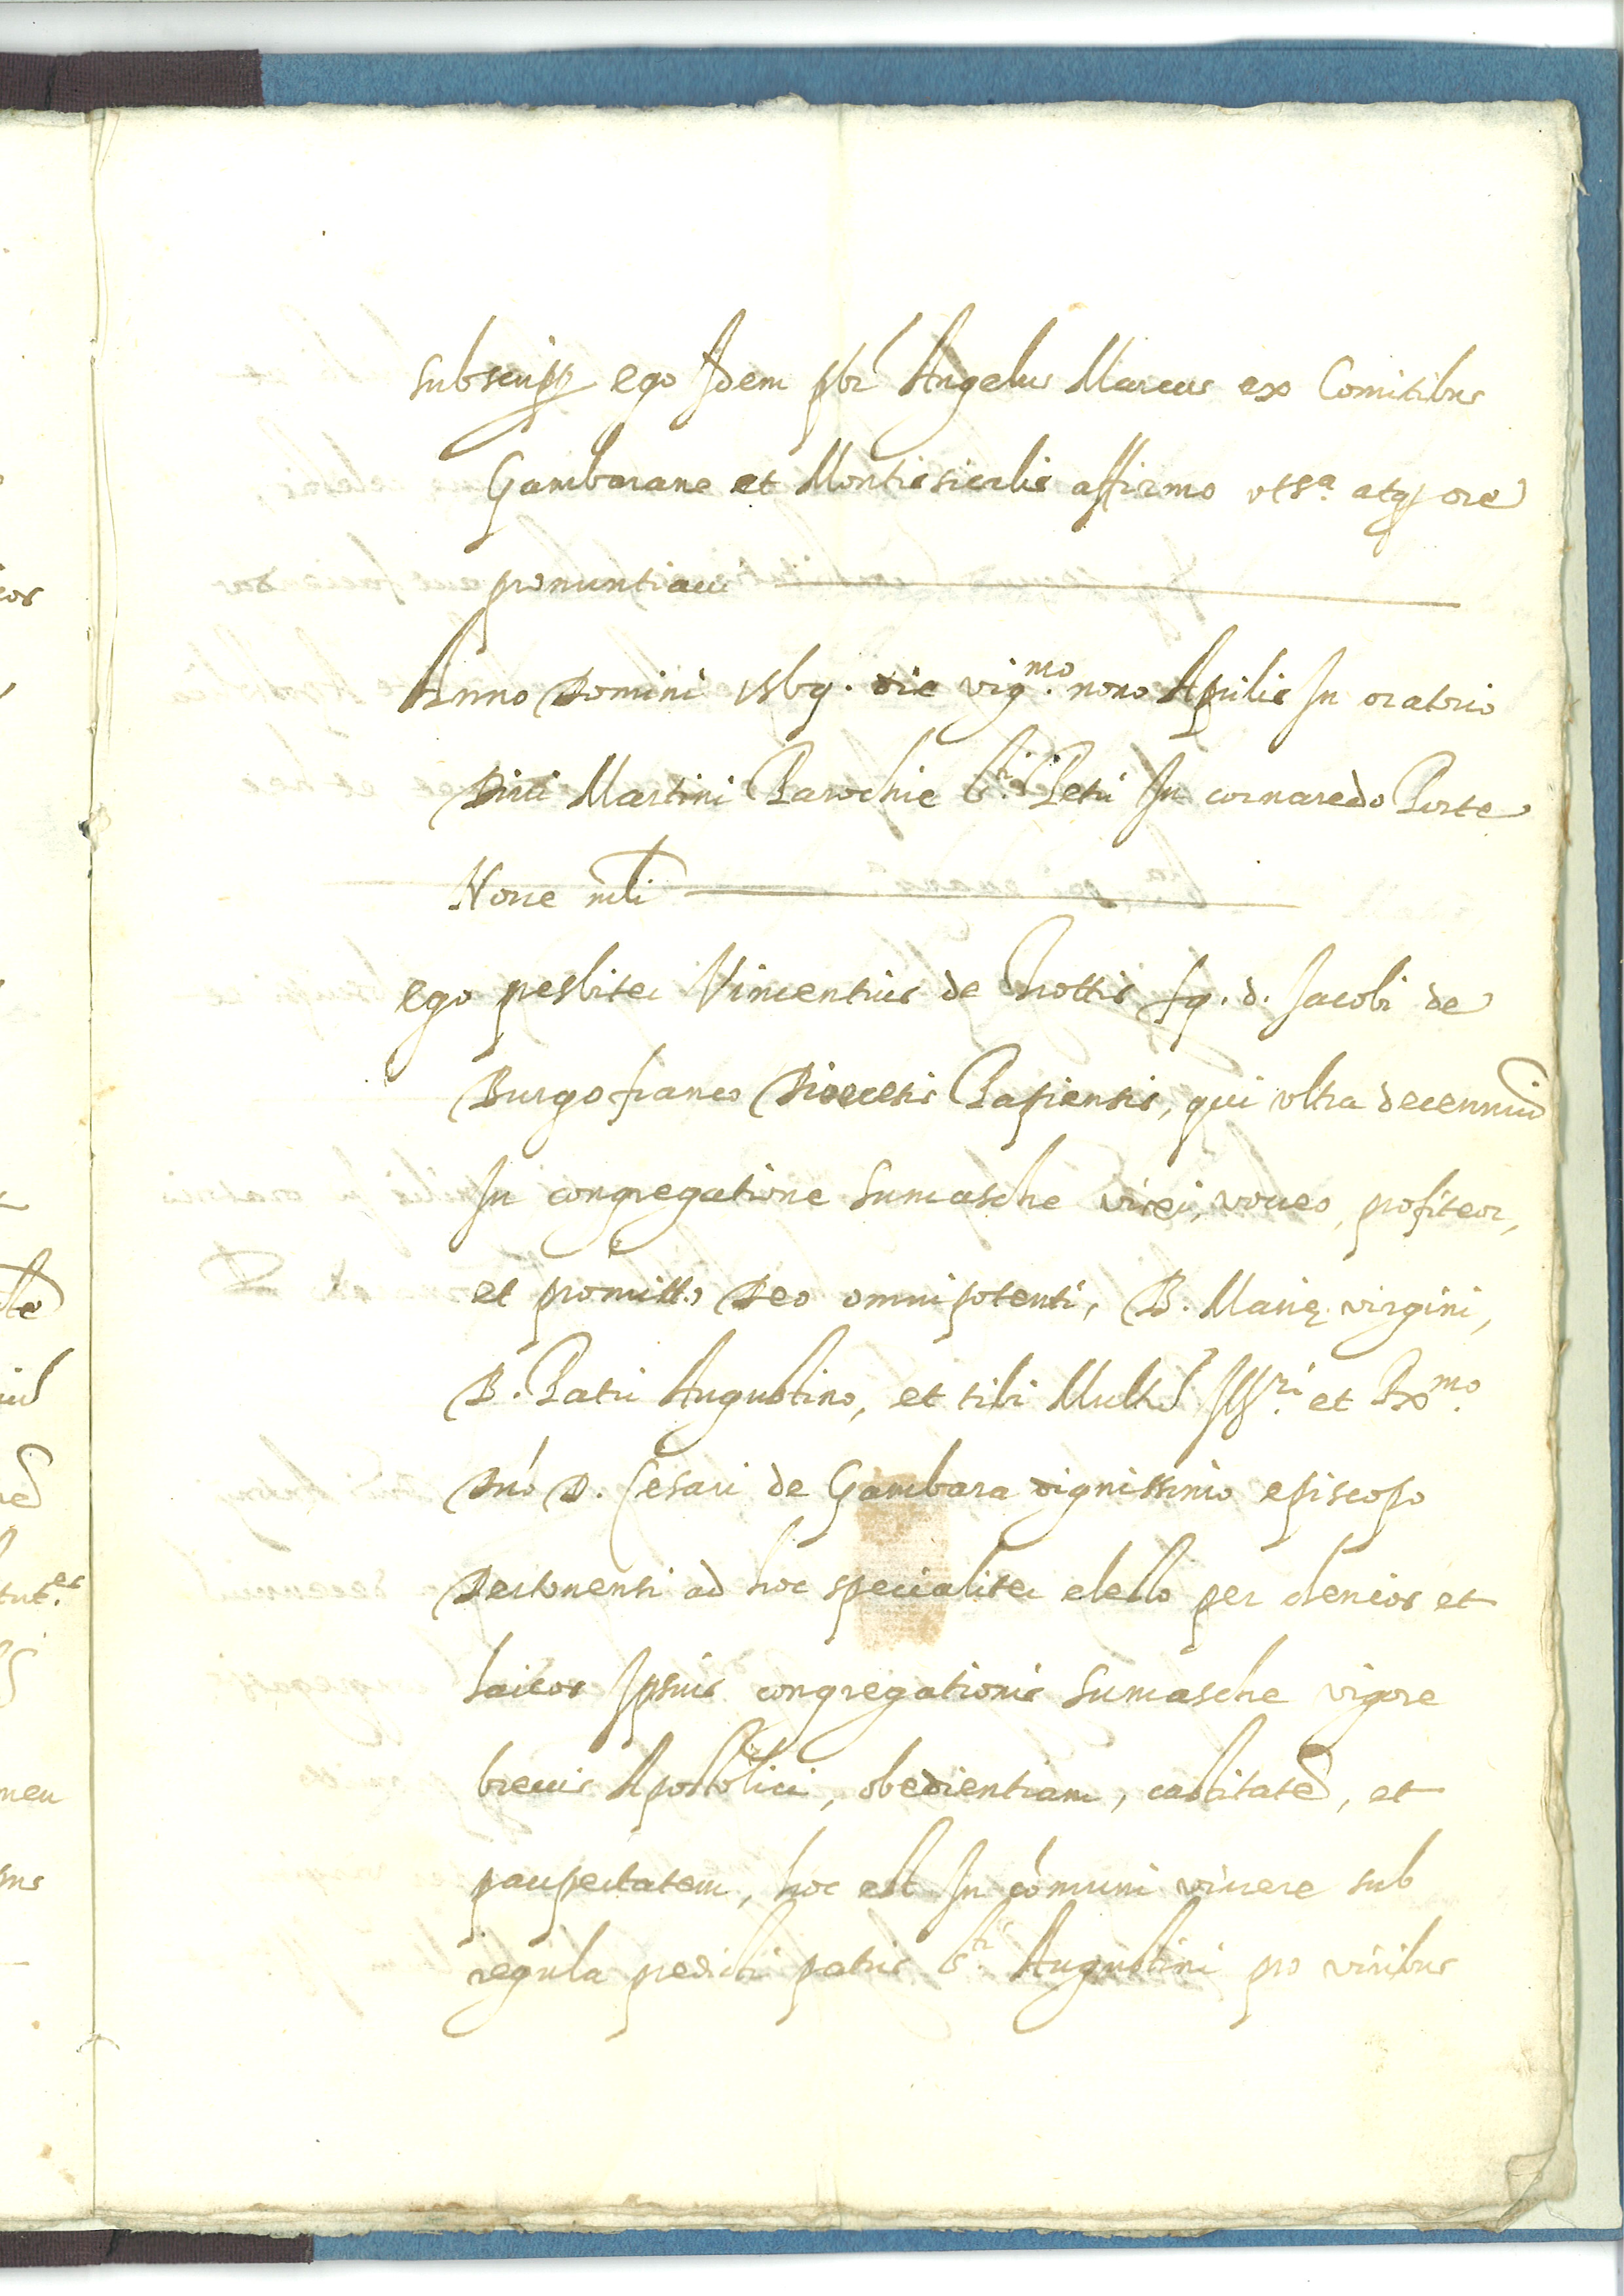 subscripsi ego Idem pbr Angelus Marcus ex Comitibus
Gambarane et Montissicalis affirmo utsa. atq ore
pronuntiavi
Anno Domini 1569. die vigmo. nono Aprilis In oratorio
Divi Martini Parochie Sti. Petri In cornaredo Porte
Nove mli
ego presbiter Vincentius de Trottis fq. d. Jacobi de
Burgofranco Diocesis Papiensis, qui ultra decenniu
In congregatione Sumasche vixi, voveo, profiteor,
et promitto Deo omnipotenti, B. Marię virgini,
B. Patri Augustino, et tibi Multo Illri. et Rmo.
Dno D. Cesari de Gambara dignissimo episcopo
Dertonensi ad hoc specialiter electo per clericos et
laicos Ipsius congregationis Sumasche vigore
brevis Apostolici, obedientiam, castitate, et
paupertatem, hoc est In comuni vivere sub
regula predicti patris Sti. Augustini pro viribus
cos
tutes.